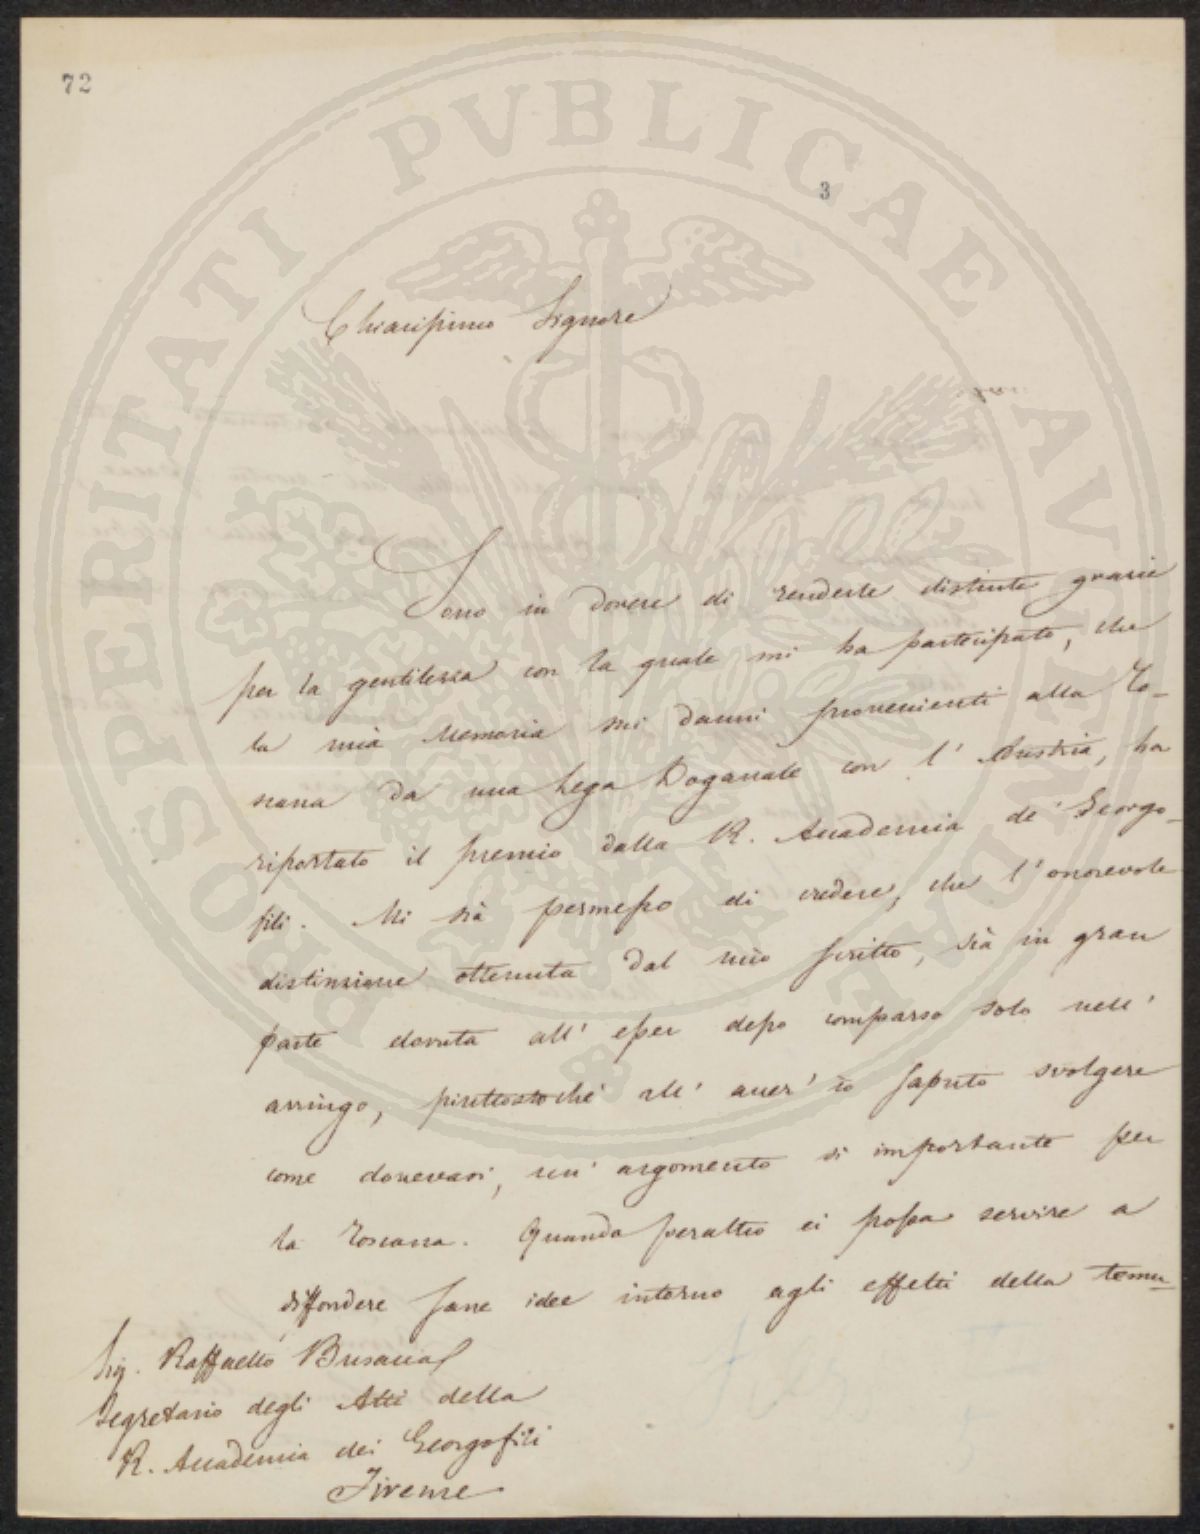 72
3
PROSPERITATI PVBLICAE AVGENDAE
Chiarissimo Signore
Sono in dovere di renderle distinte grazie
per la gentilezza con la quale mi ha partecipato, che
la mia Memoria sui danni provenienti alla To-
scana da una Lega Doganale con l' Austria, ha
riportato il premio dalla R. Accademia de' Georgo-
fili. Mi sia permesso di credere, che l' onorevole
distinzione ottenuta dal mio scritto, sia in gran
parte dovuta all' esser desso comparso solo nell'
arringo, piuttostoché all' aver' io saputo svolgere
come dovevasi, un' argomento sì importante per
la Toscana. Quando peraltro ei possa servire a
diffondere sane idee intorno agli effetti della temu-
Sig. Raffaello Busacca
Segretario degli Atti della
R. Accademia dei Georgofili
Firenze